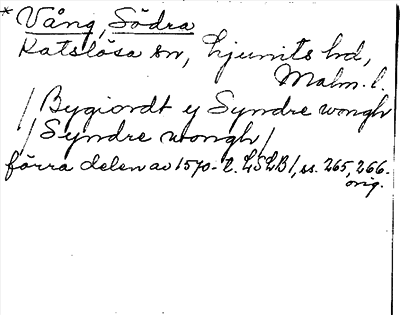 * Vång, Södra
Katslösa sn, Ljunits hd,
Malm. l.
/ Bygiordt y Syndre wongh
/ Syndre wongh /
förra delen av 1570-t. LSLB 1, ss. 265, 266.
orig.